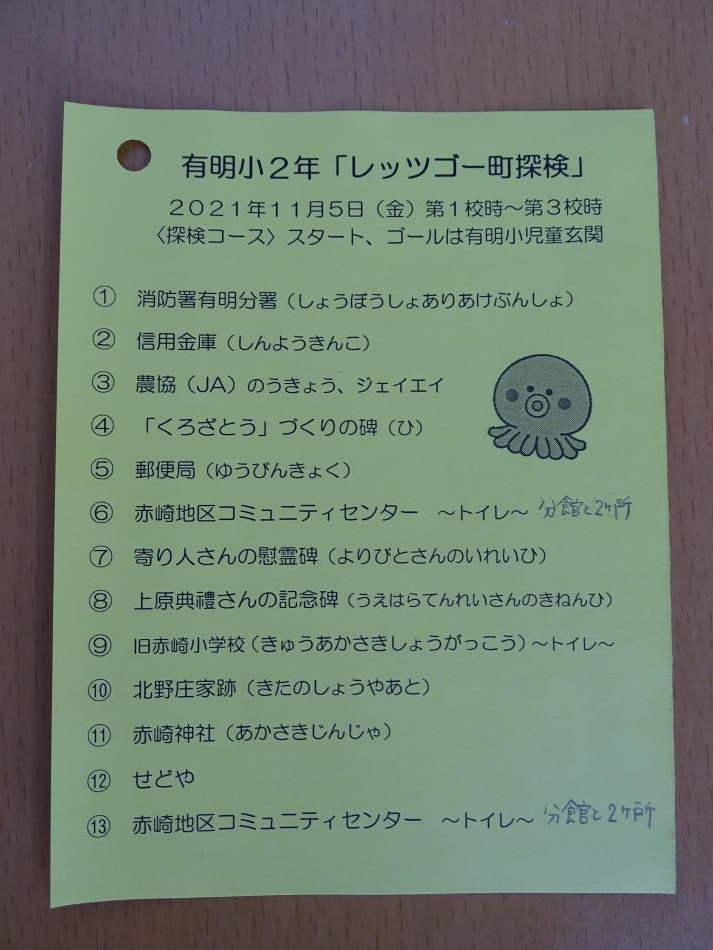 有明小２年「レッツゴー町探検」
２０２１年１１月５日（金）第１校時～第３校時
〈探検コース〉スタート、ゴールは有明小児童玄関
① 消防署有明分署（しょうぼうしょありあけぶんしょ）
② 信用金庫（しんようきんこ）
③ 農協（JA）のうきょう、ジェイエイ
④ 「くろざとう」づくりの碑（ひ）
⑤ 郵便局（ゆうびんきょく）
⑥ 赤崎地区コミュニティセンター ～トイレ～ 分館と2ヶ所
⑦ 寄り人さんの慰霊碑（よりびとさんのいれいひ）
⑧ 上原典禮さんの記念碑（うえはらてんれいさんのきねんひ）
⑨ 旧赤崎小学校（きゅうあかさきしょうがっこう）～トイレ～
⑩ 北野庄家跡（きたのしょうやあと）
⑪ 赤崎神社（あかさきじんじゃ）
⑫ せどや
⑬ 赤崎地区コミュニティセンター ～トイレ～ 分館と2ヶ所